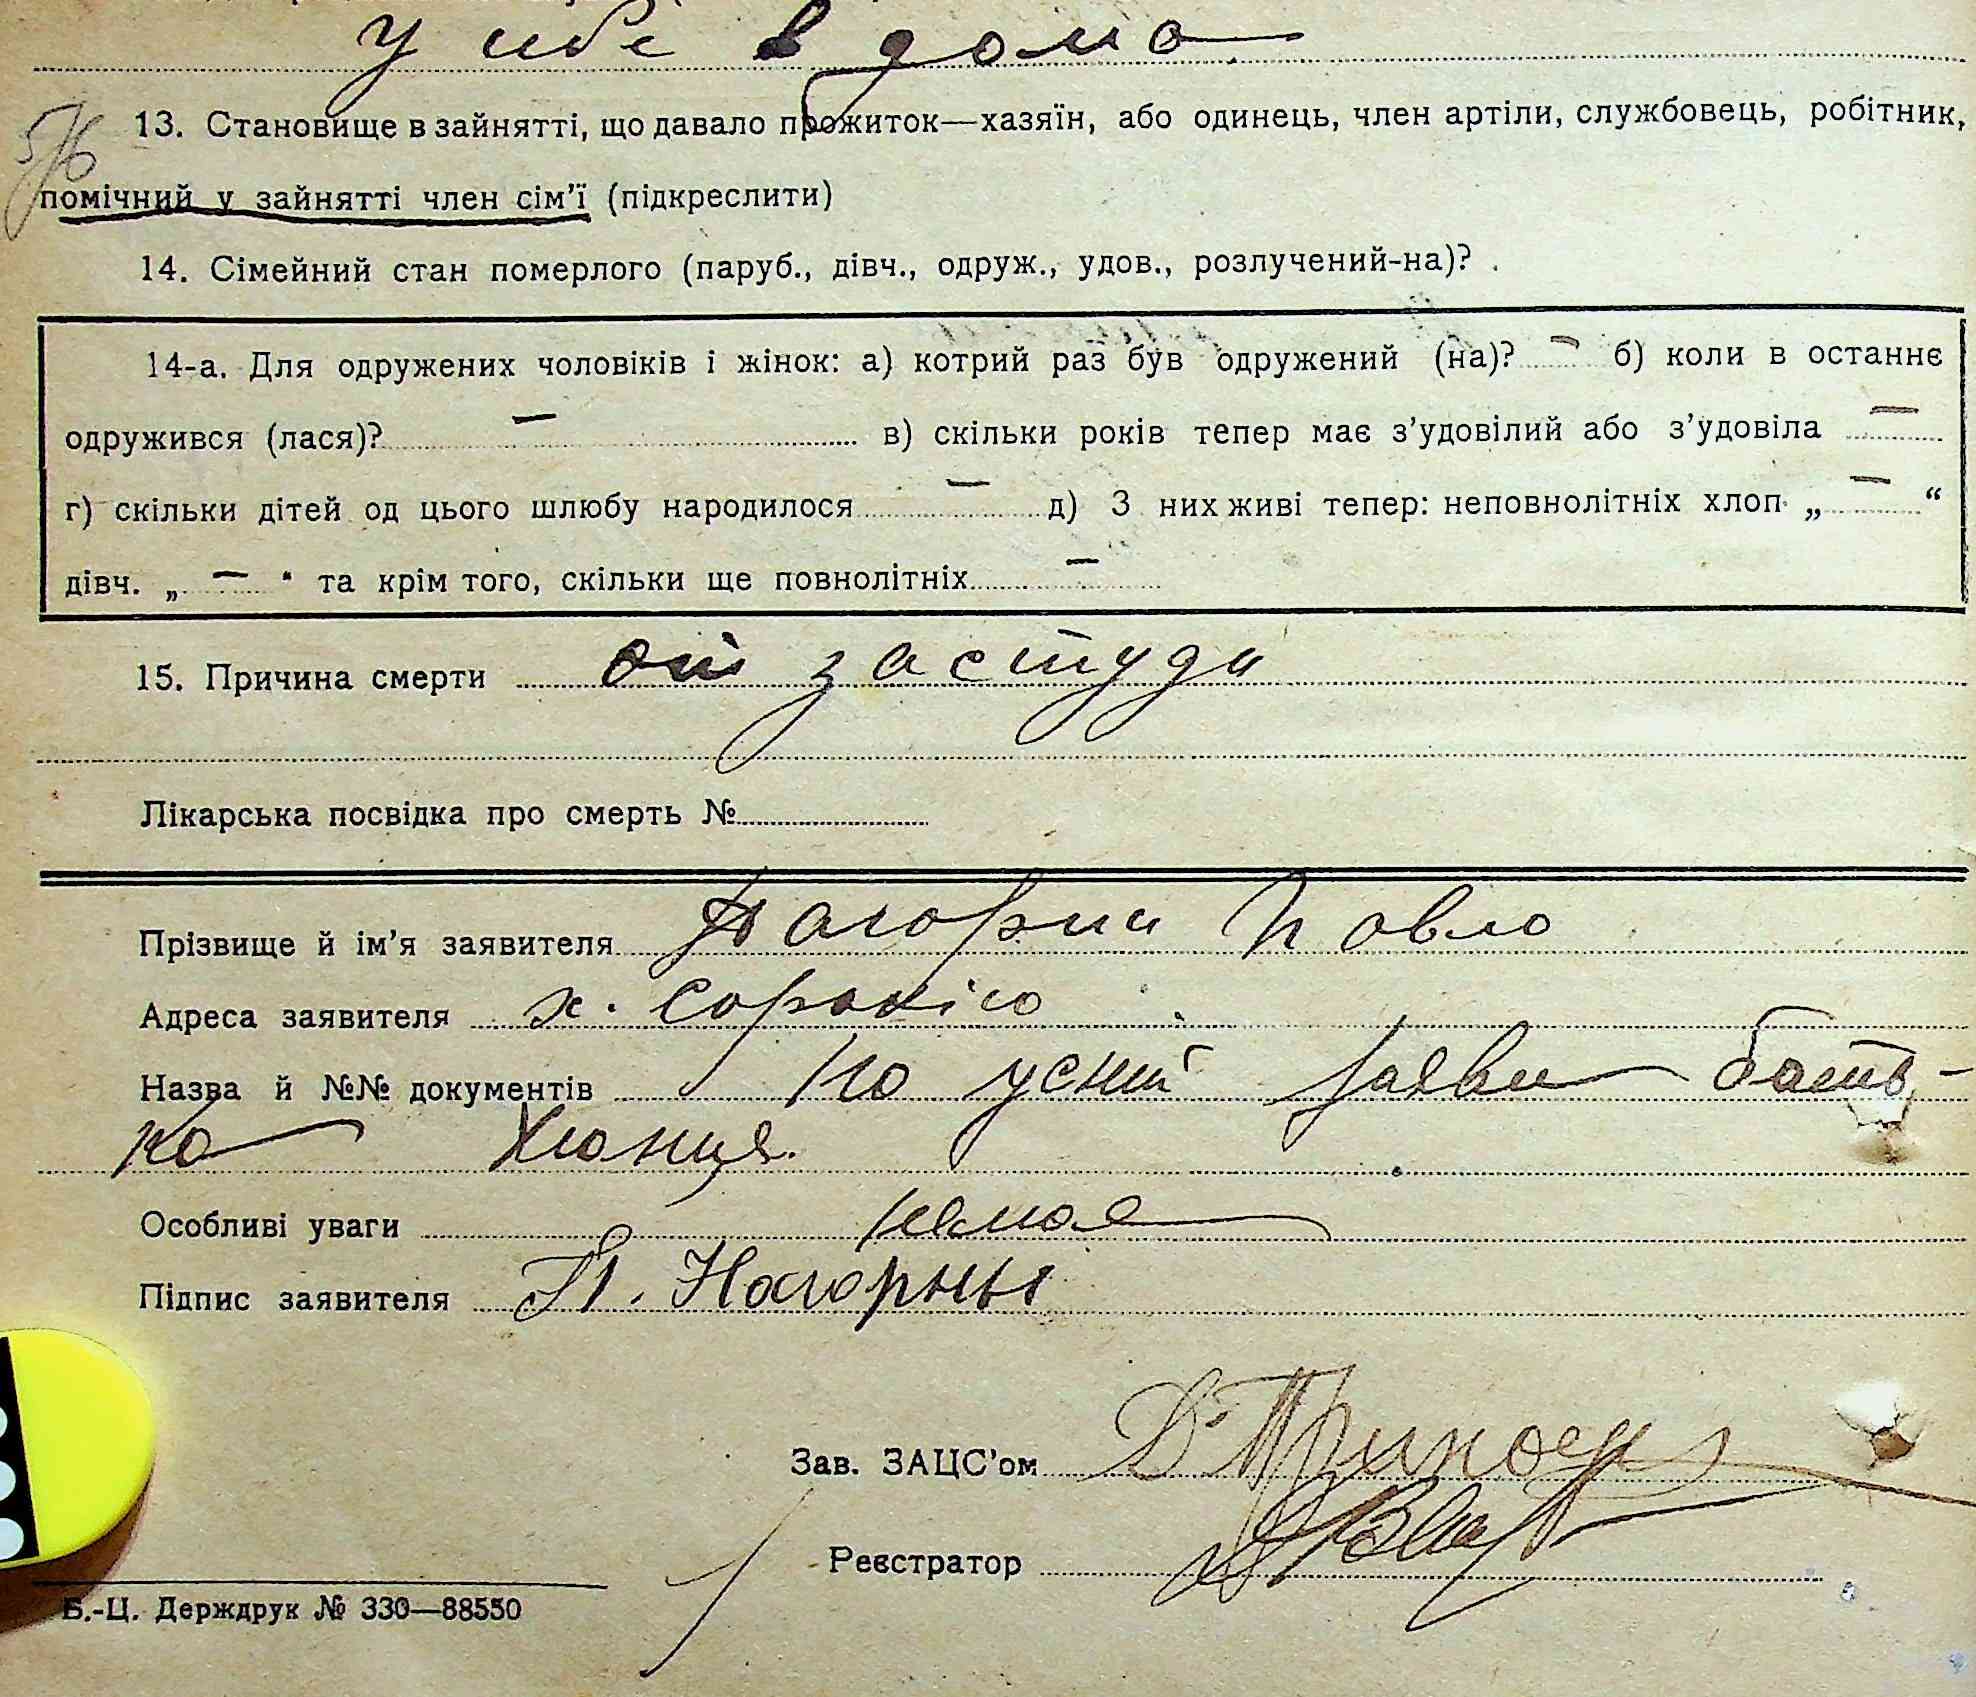 у себе в дома
13. Становище в зайнятті, що давало прожиток—хазяїн, або одинець, член артіли, службовець, робітник,
помічний у зайнятті член сім’ї (підкреслити)
14. Сімейний стан померлого (паруб., дівч., одруж., удов., розлучений-на)? .
14-а. Для одружених чоловіків і жінок: а) котрий раз був одружений (на)? — б) коли в останнє
одружився (лася)? — в) скільки років тепер має з’удовілий або з’удовіла —
г) скільки дітей од цього шлюбу народилося — д) З них живі тепер: неповнолітніх хлоп „ — “
дівч. „ — “ та крім того, скільки ще повнолітніх —
15. Причина смерти от застуди
Лікарська посвідка про смерть №
Прізвище й ім’я заявителя Нагорни Павло
Адреса заявителя х.
Назва й №№ документів По усній заяви бать-
ка
Особливі уваги немає
Підпис заявителя П. Нагорны
Зав. ЗАЦС’ом
Реєстратор
Б.-Ц. Держдрук № 330—88550